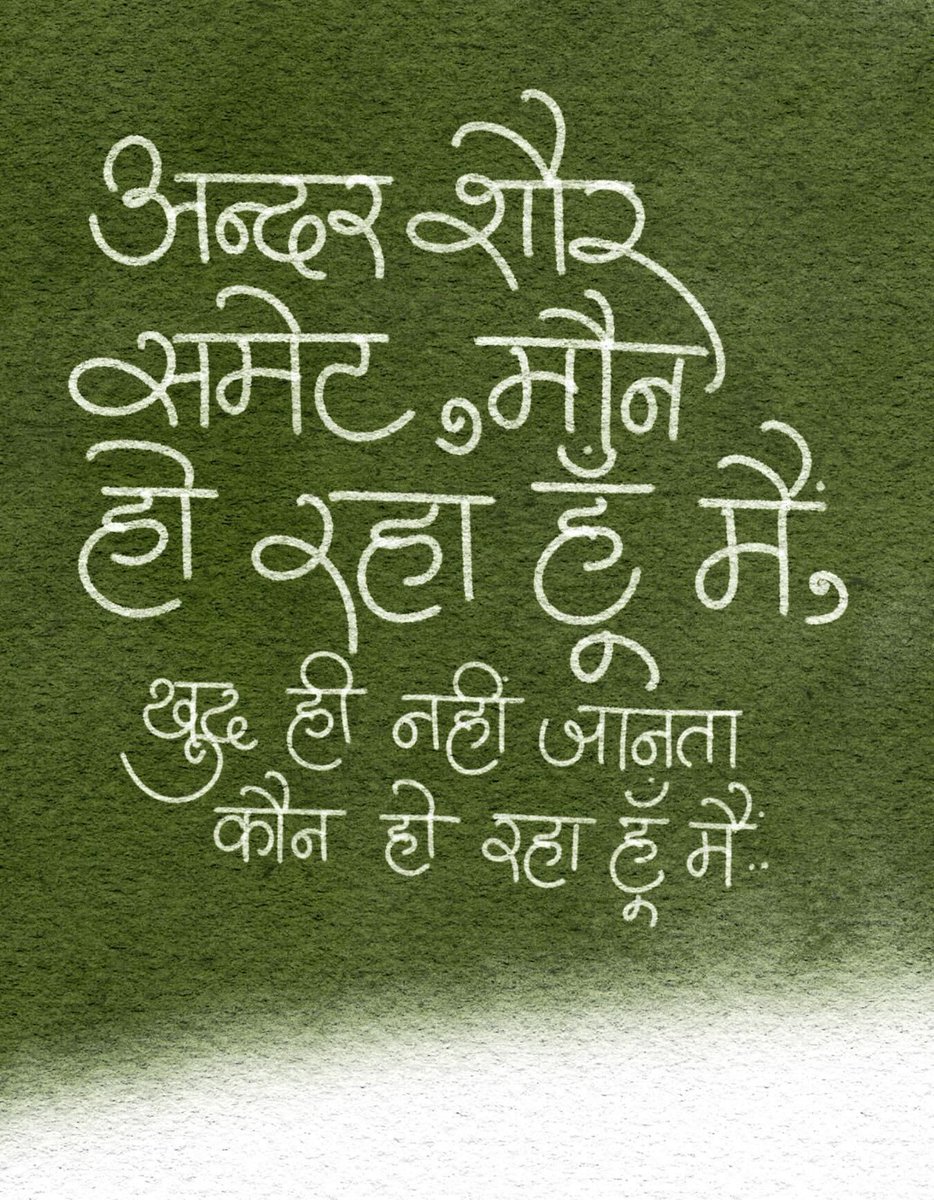 अन्दर शौर
समेट ,मौन
हो रहा हूँ मैं,
खुद ही नहीं जानता
कौन हो रहा हूँ मैं..